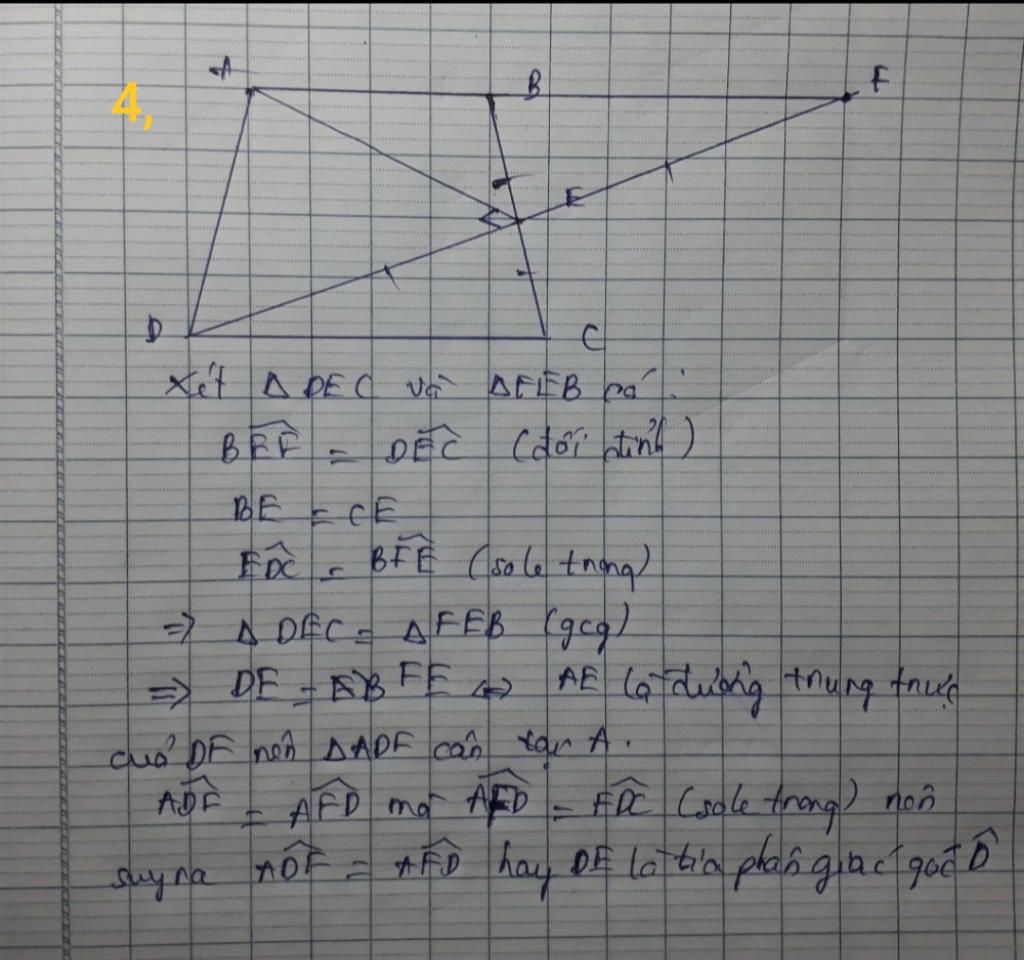 4,
A B F
E
D C
Xét Δ DEC và ΔFEB có :
BÊF = DÊC (đối đỉnh)
BE = CE
ED̂C = BF̂E (sole trong)
=> Δ DEC = Δ FEB (gcg)
=> DE = FE <=> AE là đường trung trực
của DF nên ΔADF cân tại A.
AD̂F = AF̂D mà AF̂D = FD̂C (sole trong) nên
suy ra AD̂F = AF̂D hay DE là tia phân giác góc D̂